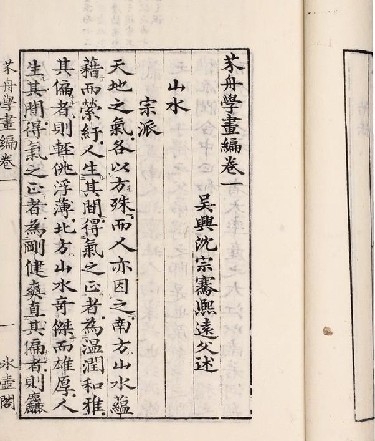 芥舟學畫編卷一
吳興沈宗騫熙遠父述
山水
宗派
天地之氣各以方殊而人亦因之南方山水蘊
藉而縈紆人生其間得氣之正者為溫潤和雅
其偏者則輕佻浮薄北方山水奇傑而雄厚人
生其間得氣之正者為剛健爽直其偏者則麤
芥舟學畫編卷一 一 冰壺閣